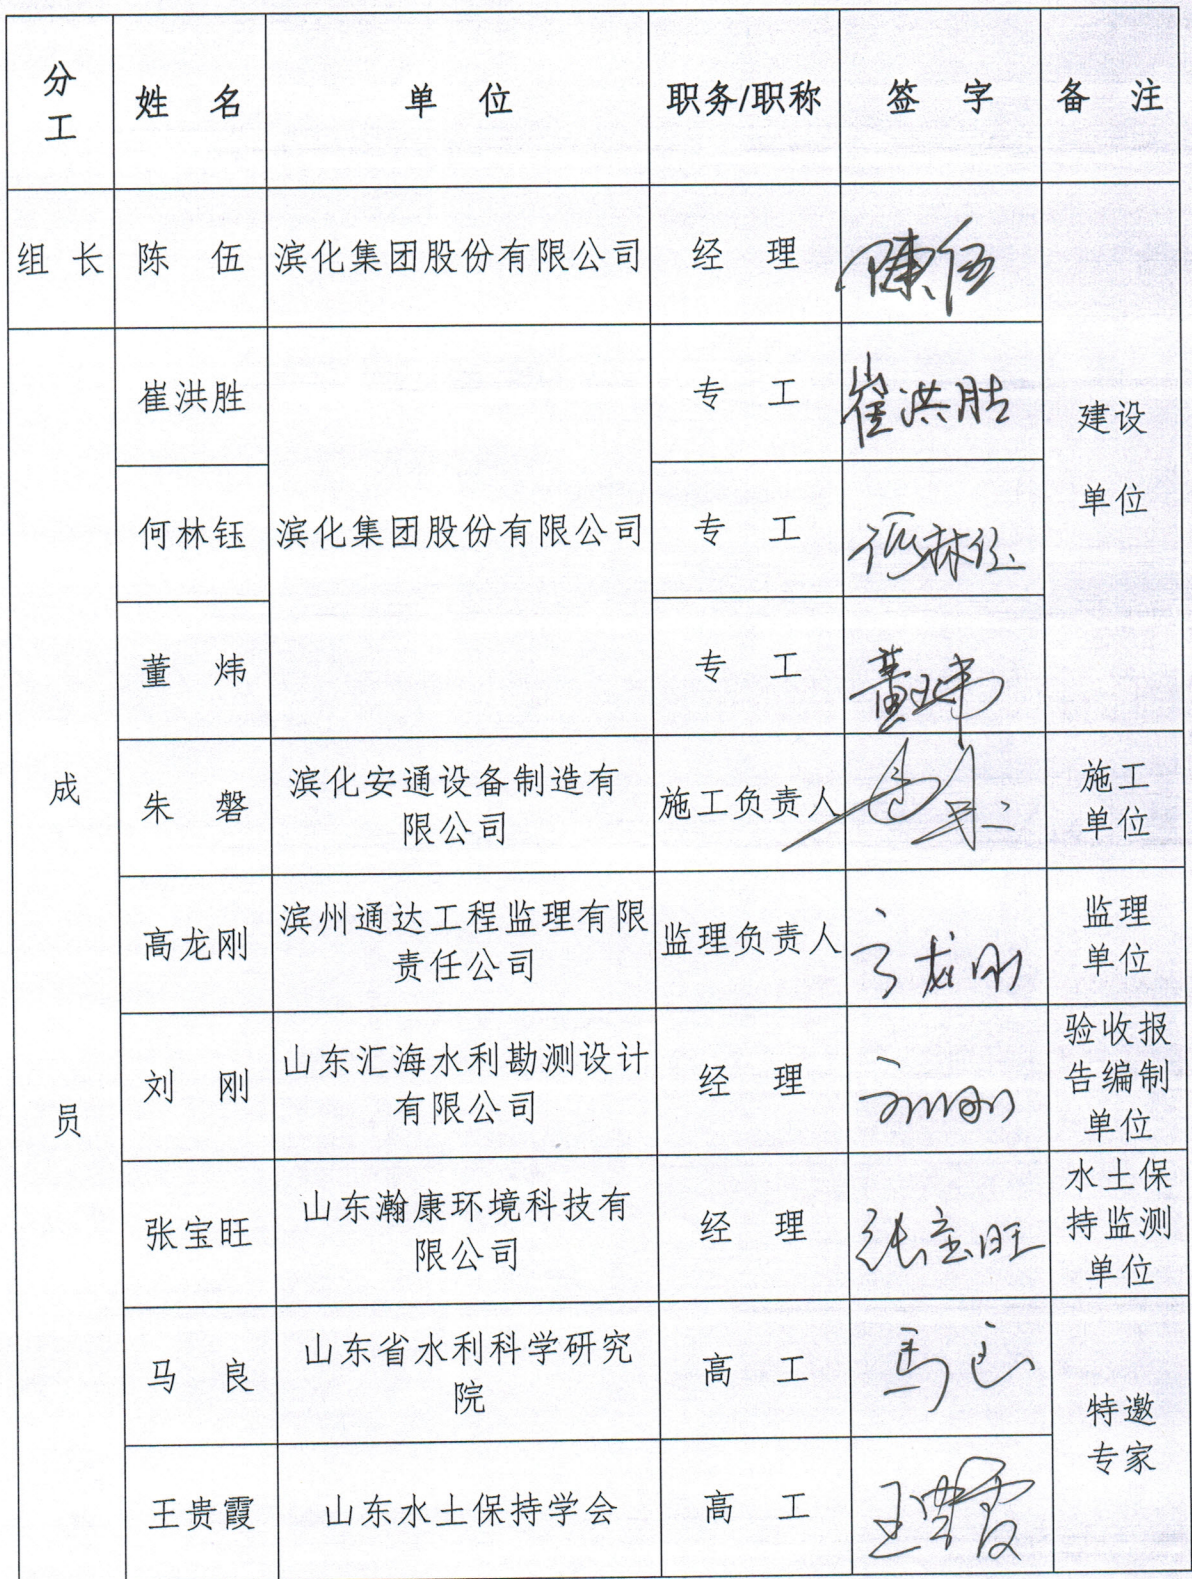 分工 姓 名 单 位 职务/职称 签 字 备 注
组 长 陈 伍 滨化集团股份有限公司 经 理 陳伍
建设
单位
成
员
崔洪胜 专 工 崔洪胜
何林钰 滨化集团股份有限公司 专 工 何林钰
董 炜 专 工 董炜
朱 磐 滨化安通设备制造有
限公司 施工负责人 施工
单位
高龙刚 滨州通达工程监理有限
责任公司 监理负责人 高龙刚 监理
单位
刘 刚 山东汇海水利勘测设计
有限公司 经 理 刘刚 验收报
告编制
单位
张宝旺 山东瀚康环境科技有
限公司 经 理 张宝旺 水土保
持监测
单位
马 良 山东省水利科学研究
院 高 工 馬良 特邀
专家
王贵霞 山东水土保持学会 高 工 王贵霞